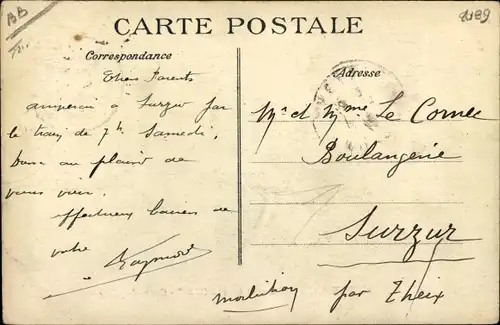 BB
2189
CARTE POSTALE
Correspondance
Adresse
Chers Parents
arriverai à Surzur par
le train de 7h Samedi.
Dans le plaisir de
vous voir.
affectueux baisers de
votre
Raymond
Mr et Mme Le Cornec
Boulangerie
Surzur
par Theix
Morbihan